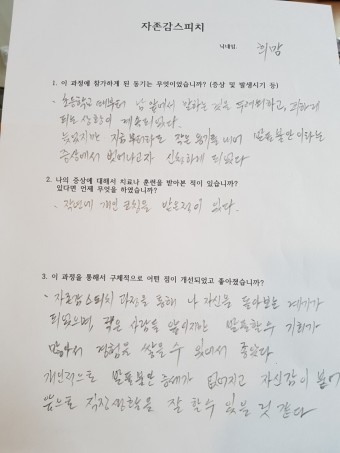 자존감스피치
닉네임. 희망
1. 이 과정에 참가하게 된 동기는 무엇이었습니까? (증상 및 발생시기 등)
- 초등학교 때부터 남 앞에서 말하는 것을 두려워하고, 피하게
되는 상황이 계속되었다.
늦었지만 지금부터라도 작은 용기를 내어 발표불안이라는
증상에서 벗어나고자 신청하게 되었다
2. 나의 증상에 대해서 치료나 훈련을 받아본 적이 있습니까?
있다면 언제 무엇을 하였습니까?
- 작년에 개인 코칭을 받은적이 있다.
3. 이 과정을 통해서 구체적으로 어떤 점이 개선되었고 좋아졌습니까?
- 자존감스피치 과정을 통해 나 자신을 돌아보는 계기가
되었으며, 많은 사람들 앞이지만 발표할수 기회가
많아서 경험을 쌓을 수 있어서 좋았다.
개인적으로 발표불안 증세가 없어지고 자신감이 붙어
앞으로 직장생활을 잘 할수 있을 것 같다